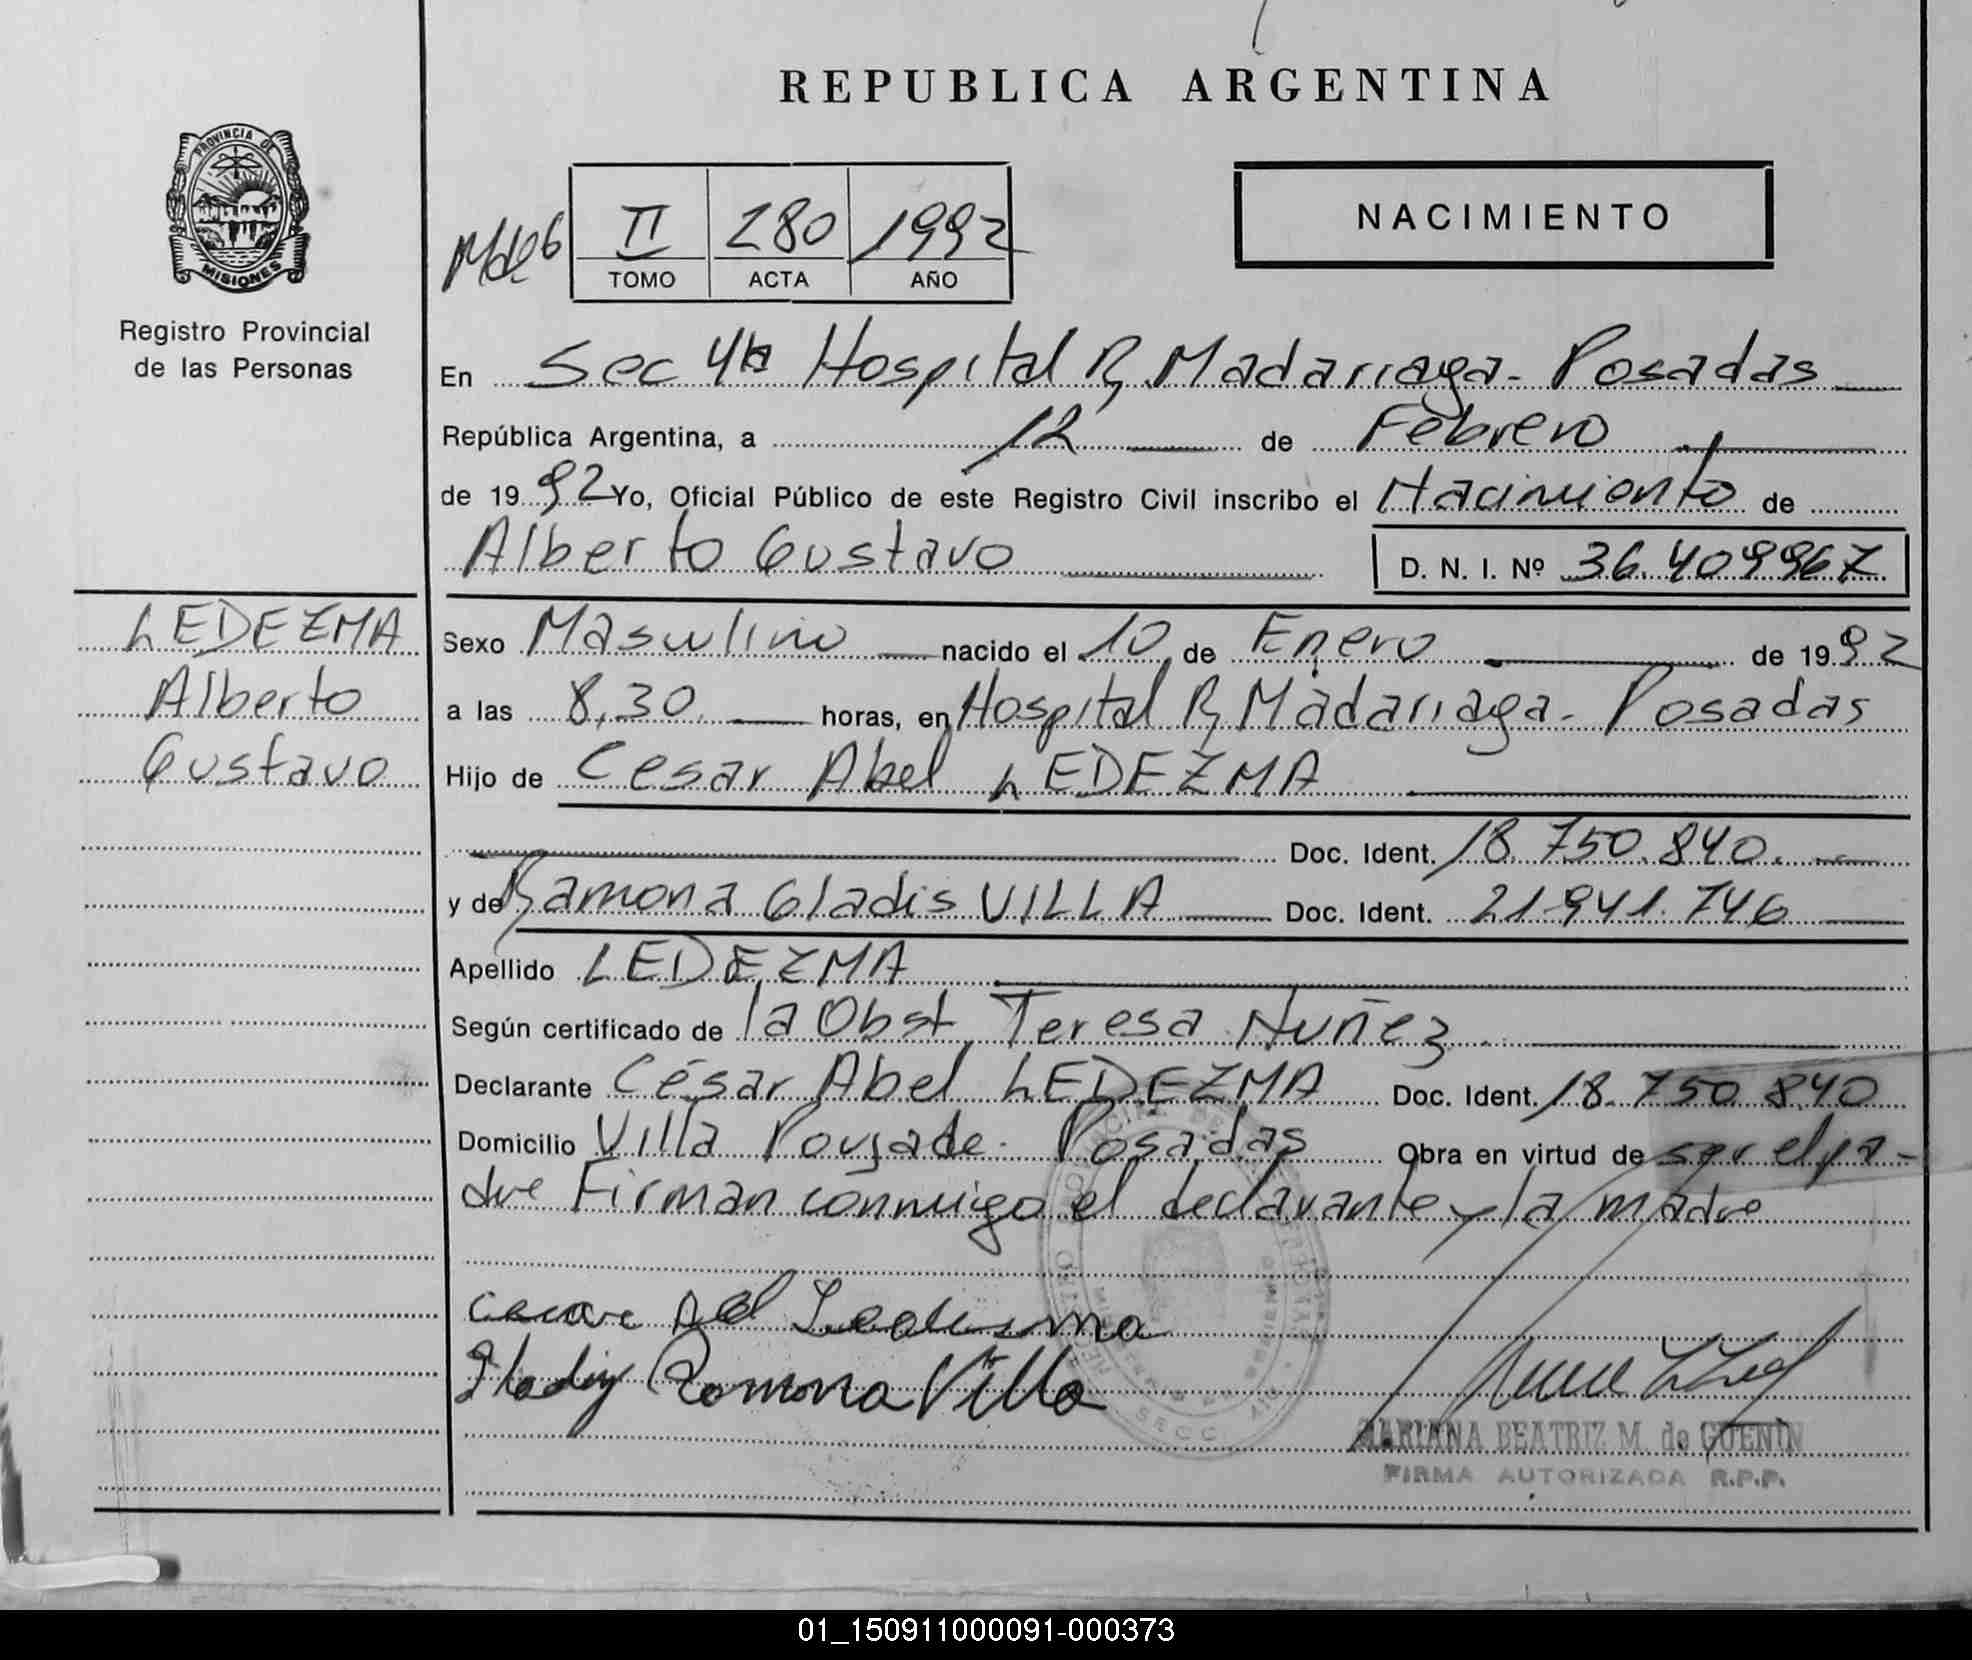 REPUBLICA ARGENTINA
PROVINCIA DE
MISIONES
Registro Provincial
de las Personas
II 280 1992
TOMO ACTA AÑO
NACIMIENTO
En Sec 4ta Hospital R. Madariaga - Posadas
República Argentina, a 12 de Febrero
de 1992 Yo, Oficial Público de este Registro Civil inscribo el Nacimiento de
Alberto Gustavo
D. N. I. Nº 36.409967
LEDEZMA
Alberto
Gustavo
Sexo Masculino nacido el 10 de Enero de 1992
a las 8,30 horas, en Hospital R. Madariaga - Posadas
Hijo de Cesar Abel LEDEZMA
Doc. Ident. 18.750.840.
y de Ramona Gladis VILLA Doc. Ident. 21.941.746
Apellido LEDEZMA
Según certificado de la Obst. Teresa Nuñez
Declarante César Abel LEDEZMA Doc. Ident. 18.750.840
Domicilio Villa Poujade - Posadas Obra en virtud de ser el pa-
dre Firman conmigo el declarante y la madre
Abel Ledesma
Gladiy Romona Villa
MARIANA BEATRIZ M. de GUENIN
FIRMA AUTORIZADA R.P.P.
01_150911000091-000373